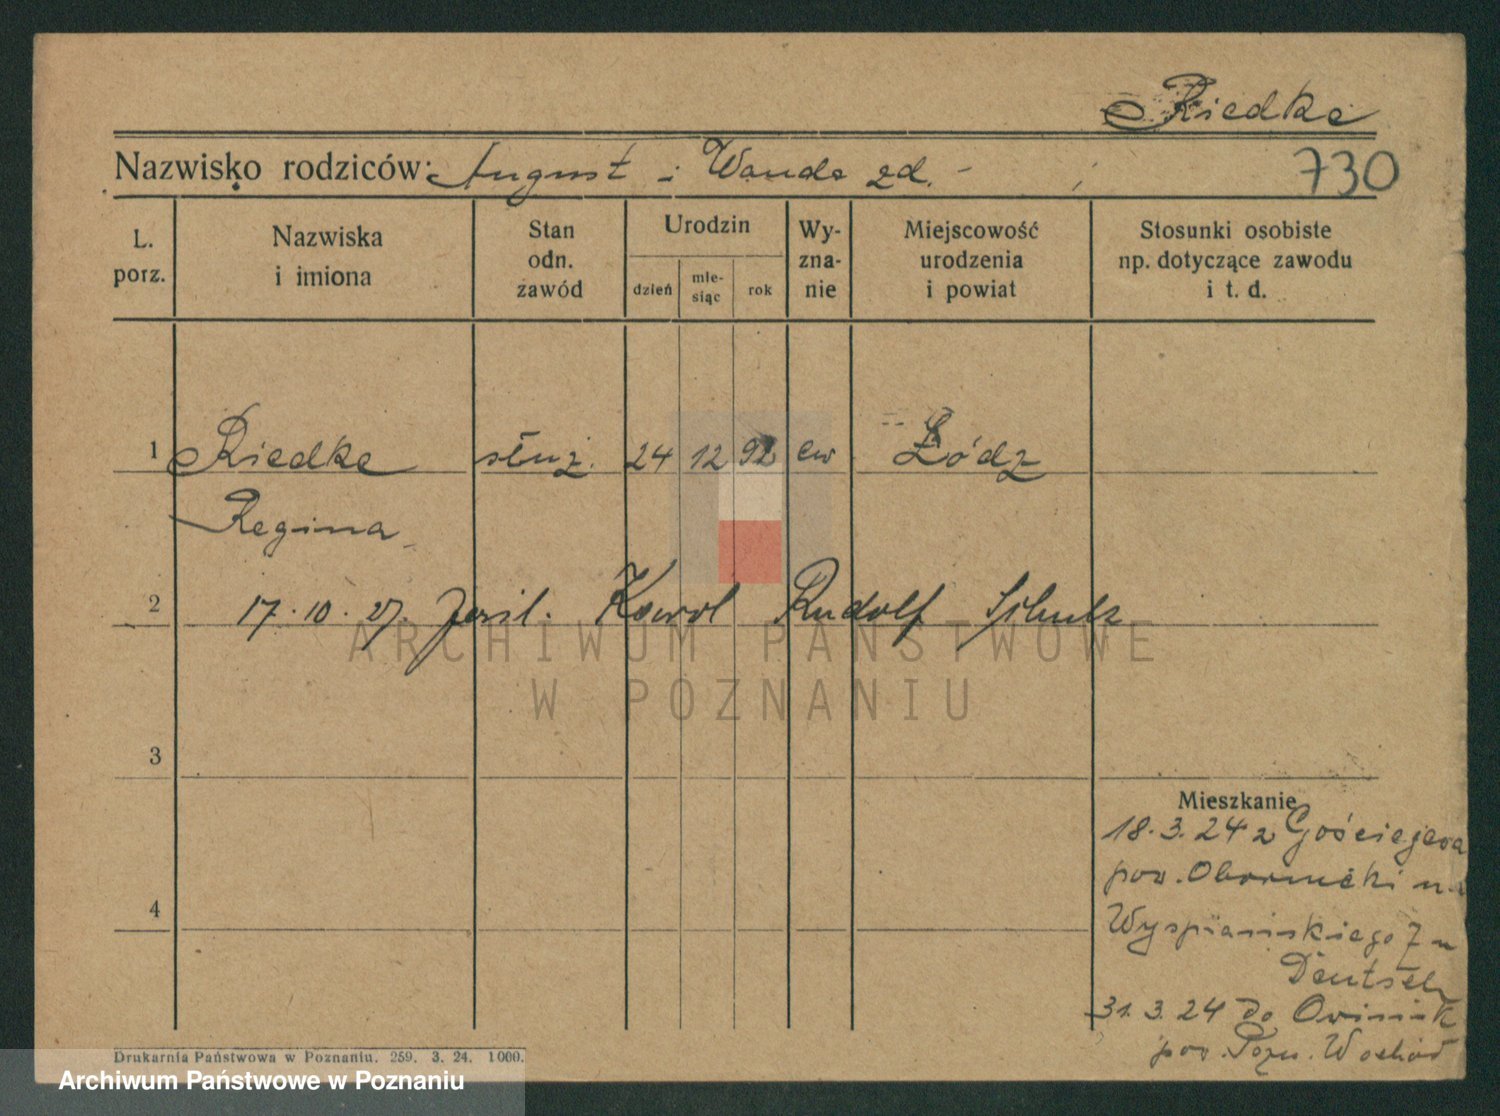 Riedke
Nazwisko rodziców: August i Wanda zd. -
730
L. porz.
Nazwiska i imiona
Stan odn. zawód
Urodzin
dzień
mie-siąc
rok
Wy-zna-nie
Miejscowość urodzenia i powiat
Stosunki osobiste np. dotyczące zawodu i t. d.
1 Riedke służ. 24 12 92 ew Łódz
Regina
2 17.10.27. Karol Rudolf
ARCHIWUM PAŃSTWOWE
W POZNANIU
3
Mieszkanie
18.3.24 z Gościejewa
pow. Obornicki
4
Wyspiańskiego 7 u
Deutsch
31.3.24 do Owińsk
pow. Pozn. Wschód
Drukarnia Państwowa w Poznaniu. 259. 3. 24. 1000.
Archiwum Państwowe w Poznaniu